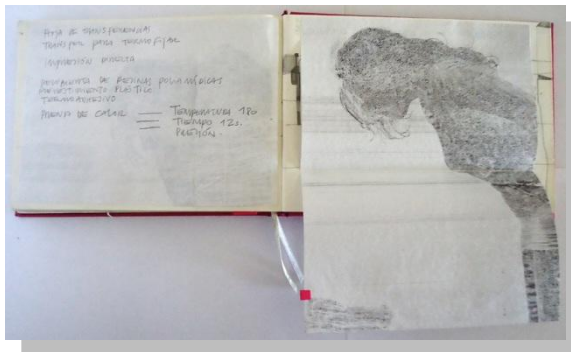 HOJA DE TRANSPARENCIAS
TRANSFER PARA TERMOFIJAR
IMPRESIÓN DIRECTA
DE RESINAS POLIAMÍDICAS
PLÁSTICO
TERMOADHESIVO
DE CALOR TEMPERATURA 180
TIEMPO 12s.
PRESIÓN.